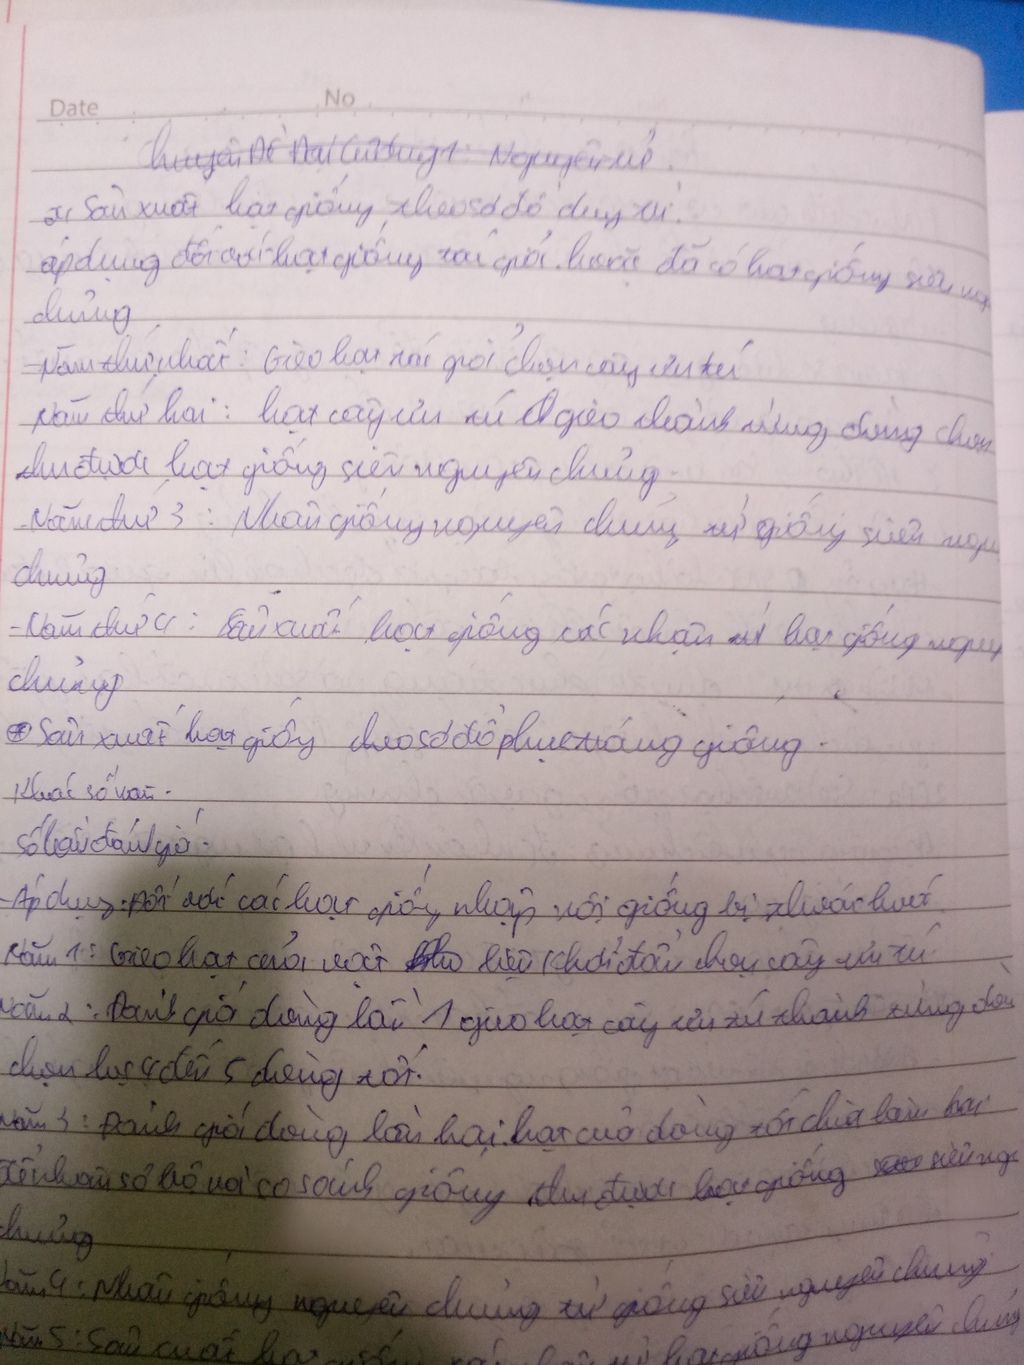 Date No
Chuyên Đề Đại Cương 1: Nguyên tử.
Sản xuất hạt giống theo sơ đồ duy trì.
áp dụng đối với hạt giống tác giả hoặc đã có hạt giống siêu
chủng
- Năm thứ nhất: Gieo hạt tác giả chọn cây ưu tú
Năm thứ hai: hạt cây ưu tú gieo thành từng dòng chọn
thu được hạt giống siêu nguyên chủng
- Năm thứ 3: Nhân giống nguyên chủng từ giống siêu
chủng
- Năm thứ 4: Sản xuất hạt giống xác nhận từ hạt giống
chủng
Sản xuất hạt giống theo sơ đồ phục tráng giống.
Khác số năm.
Số lần đánh giá.
- Áp dụng: Đối với các hạt giống nhập nội giống bị thoái hoá
Năm 1: Gieo hạt của vật liệu khởi đầu chọn cây ưu tú
Năm 2: Đánh giá dòng lần 1 gieo hạt cây ưu tú thành từng dòng
chọn hạt 4 đến 5 dòng tốt.
Năm 3: Đánh giá dòng lần hai. hạt của dòng tốt chia làm hai
để nhân sơ bộ và so sánh giống thu được hạt giống siêu
chủng
Năm 4: Nhân giống nguyên chủng từ giống siêu nguyên chủng
Năm 5: Sản xuất hạt giống xác nhận từ hạt giống nguyên chủng